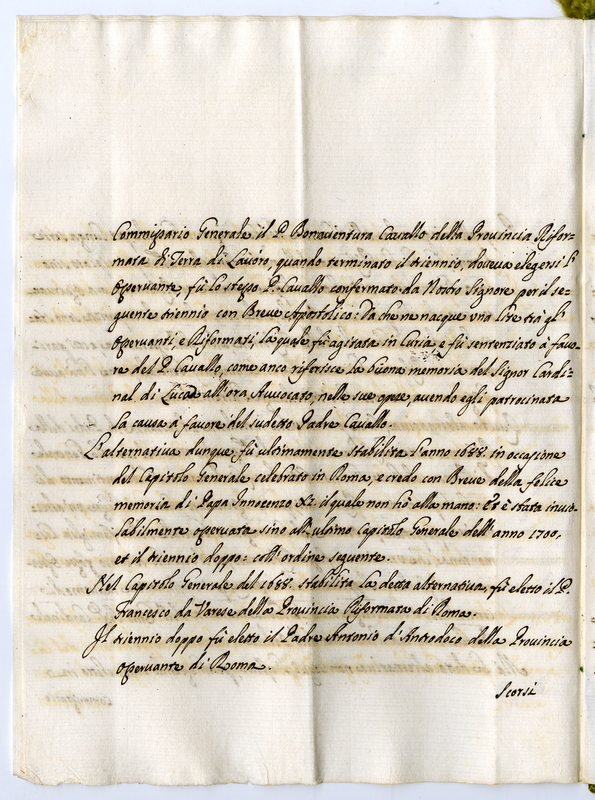 Commissario Generale il P. Bonaventura Cavallo della Provincia Rifor-
mata di Terra di Lavoro, quando terminato il triennio, doveva elegersi l'
Osservante, fù lo stesso P. Cavallo confermato da Nostro Signore per il se-
guente triennio con Breve Apostolico: Da che ne nacque una lite trà gl'
Osservanti, e Riformati, la quale fù agitata in Curia, e fù sentenziato à favo-
re del P. Cavallo, come anco riferisce la buona memoria del Signor Cardi-
nal di Luca all'ora Avvocato, nelle sue opere, avendo egli patrocinata
la causa à favore del sudetto Padre Cavallo.
L'alternativa dunque fù ultimamente stabilita l'anno 1688. in occasione
del Capitolo Generale celebrato in Roma, e credo con Breve della felice
memoria di Papa Innocenzo XI. il quale non hò alla mano: Et è stata invio-
labilmente osservata sino all'ultimo Capitolo Generale dell'anno 1700,
et il triennio doppo: coll'ordine seguente.
Nel Capitolo Generale del 1688. stabilita la detta alternativa, fù eletto il P.
Francesco da Varese della Provincia Riformata di Roma.
Il triennio doppo fù eletto il Padre Antonio d'Antrodoco della Provincia
Osservante di Roma.
Scorsi